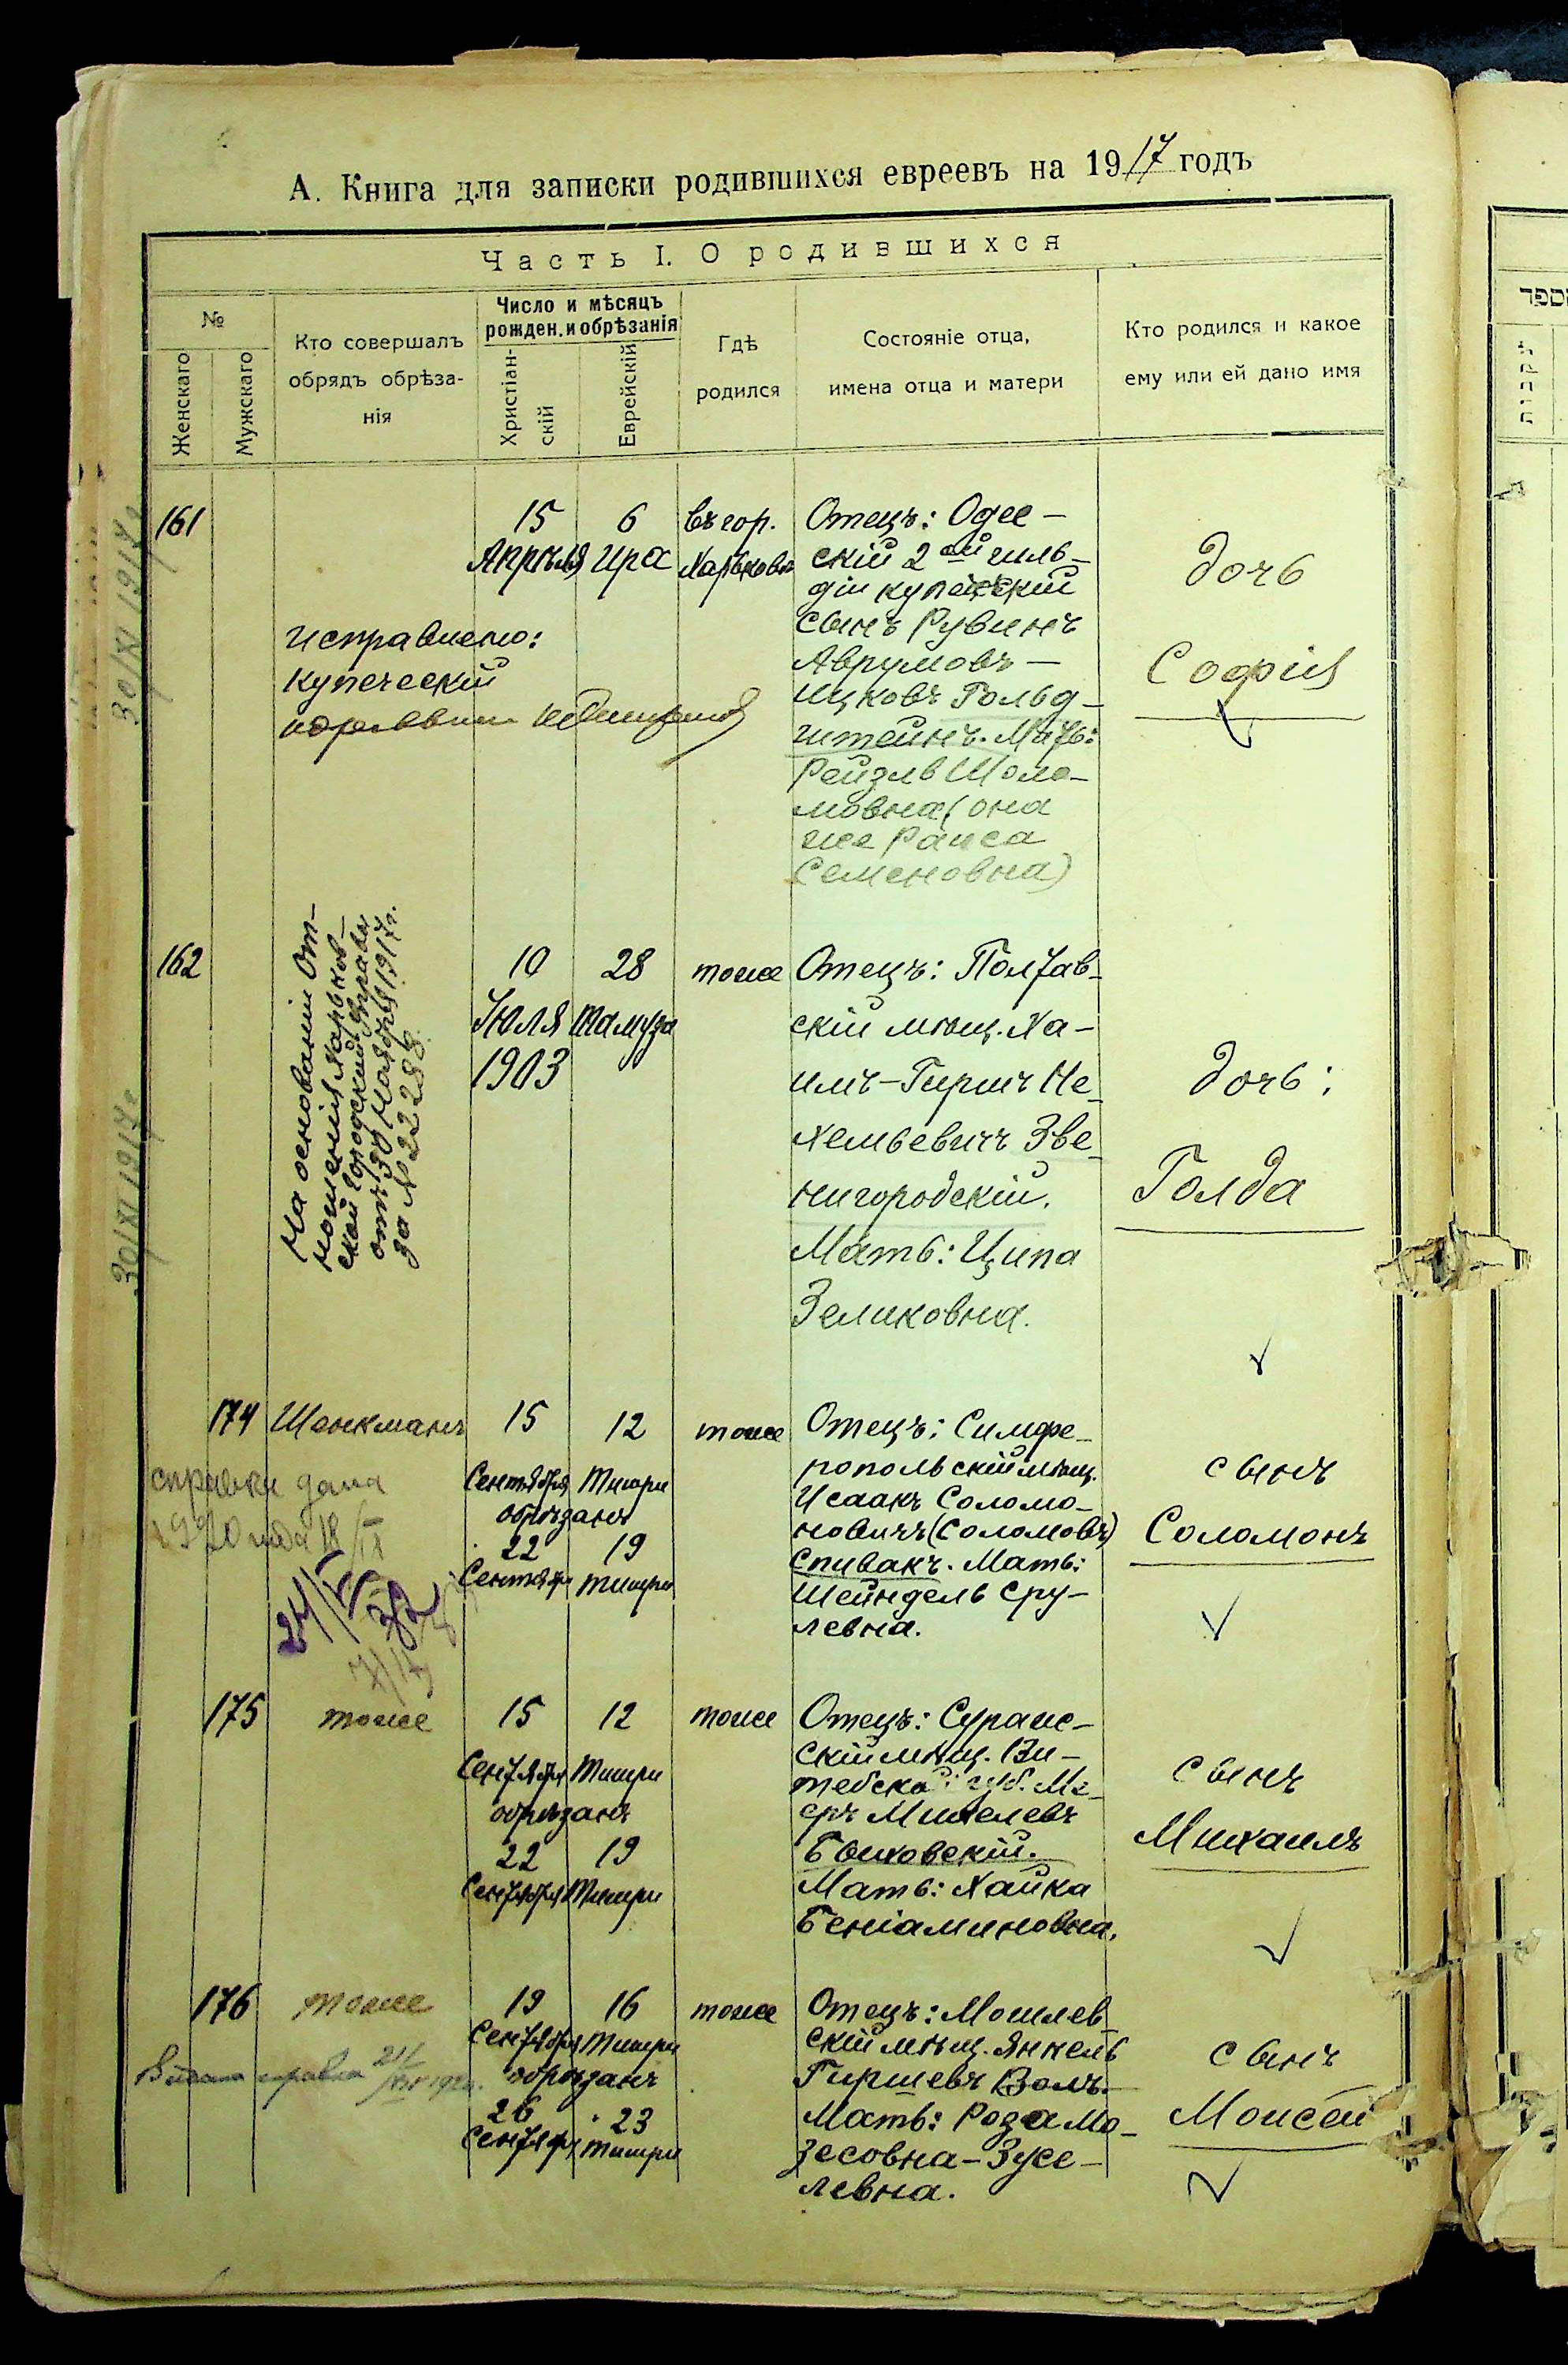 А. Книга для записки родившихся евреевъ на 1917 годъ
Часть I. О родившихся
№
Женскаго
Мужскаго
Кто совершалъ
обрядъ обрѣза-
нія
Число и мѣсяцъ
рожден. и обрѣзанія
Христіан-
скій
Еврейскій
Гдѣ
родился
Состояніе отца,
имена отца и матери
Кто родился и какое
ему или ей дано имя
161
15
Апрѣля
6
Ира
въ гор.
Харьковѣ
Отецъ: Одес-
скій 2ой гиль-
діи купечскій
сынъ Рувинъ
Аврумовъ-
Ицковъ Гольд-
штейнъ. Мать:
Рейзль Шоло-
мовна (она
же Раиса
Семеновна)
дочь
Софія
Исправлено:
купеческій
30/XI 1917 г.
162
На основаніи От-
ношенія Харьков-
ской Городской Управы
отъ 30 Ноября 1917 г.
за № 22288.
10
Іюля
1903
28
Тамуза
тоже
Отецъ: Полтав-
скій мѣщ. Ха-
имъ-Гиршъ Не-
хемьевичъ Зве-
нигородскій.
Мать: Ципа
Зеликовна.
дочь:
Голда
30/XI 1917 г.
174
Шенкманъ
15
Сентября
12
Тишри
обрѣзанъ
22
Сентяб
19
тишри
тоже
Отецъ: Симфе-
ропольскій мѣщ.
Исаакъ Соломо-
новичъ (Соломовъ)
Спивакъ. Мать:
Шейндель Сру-
левна.
сынъ
Соломонъ
справка дана
1920 года 18/IX
175
тоже
15
Сентября
12
Тишри
обрѣзанъ
22
Сентября
19
Тишри
тоже
Отецъ: Сураж-
скій мѣщ. Ви-
тебской губ. Ме-
еръ Михелевъ
Быховскій.
Мать: Хайка
Беніаминовна.
сынъ
Михаилъ
176
тоже
19
Сентября
16
Тишри
обрѣзанъ
26
Сентяб
23
тишри
тоже
Отецъ: Могилев-
скій мѣщ. Янкель
Гиршевъ Волъ.
Мать: Роза Мо-
зесовна-Зусе-
левна.
сынъ
Моисей
Выдана справка